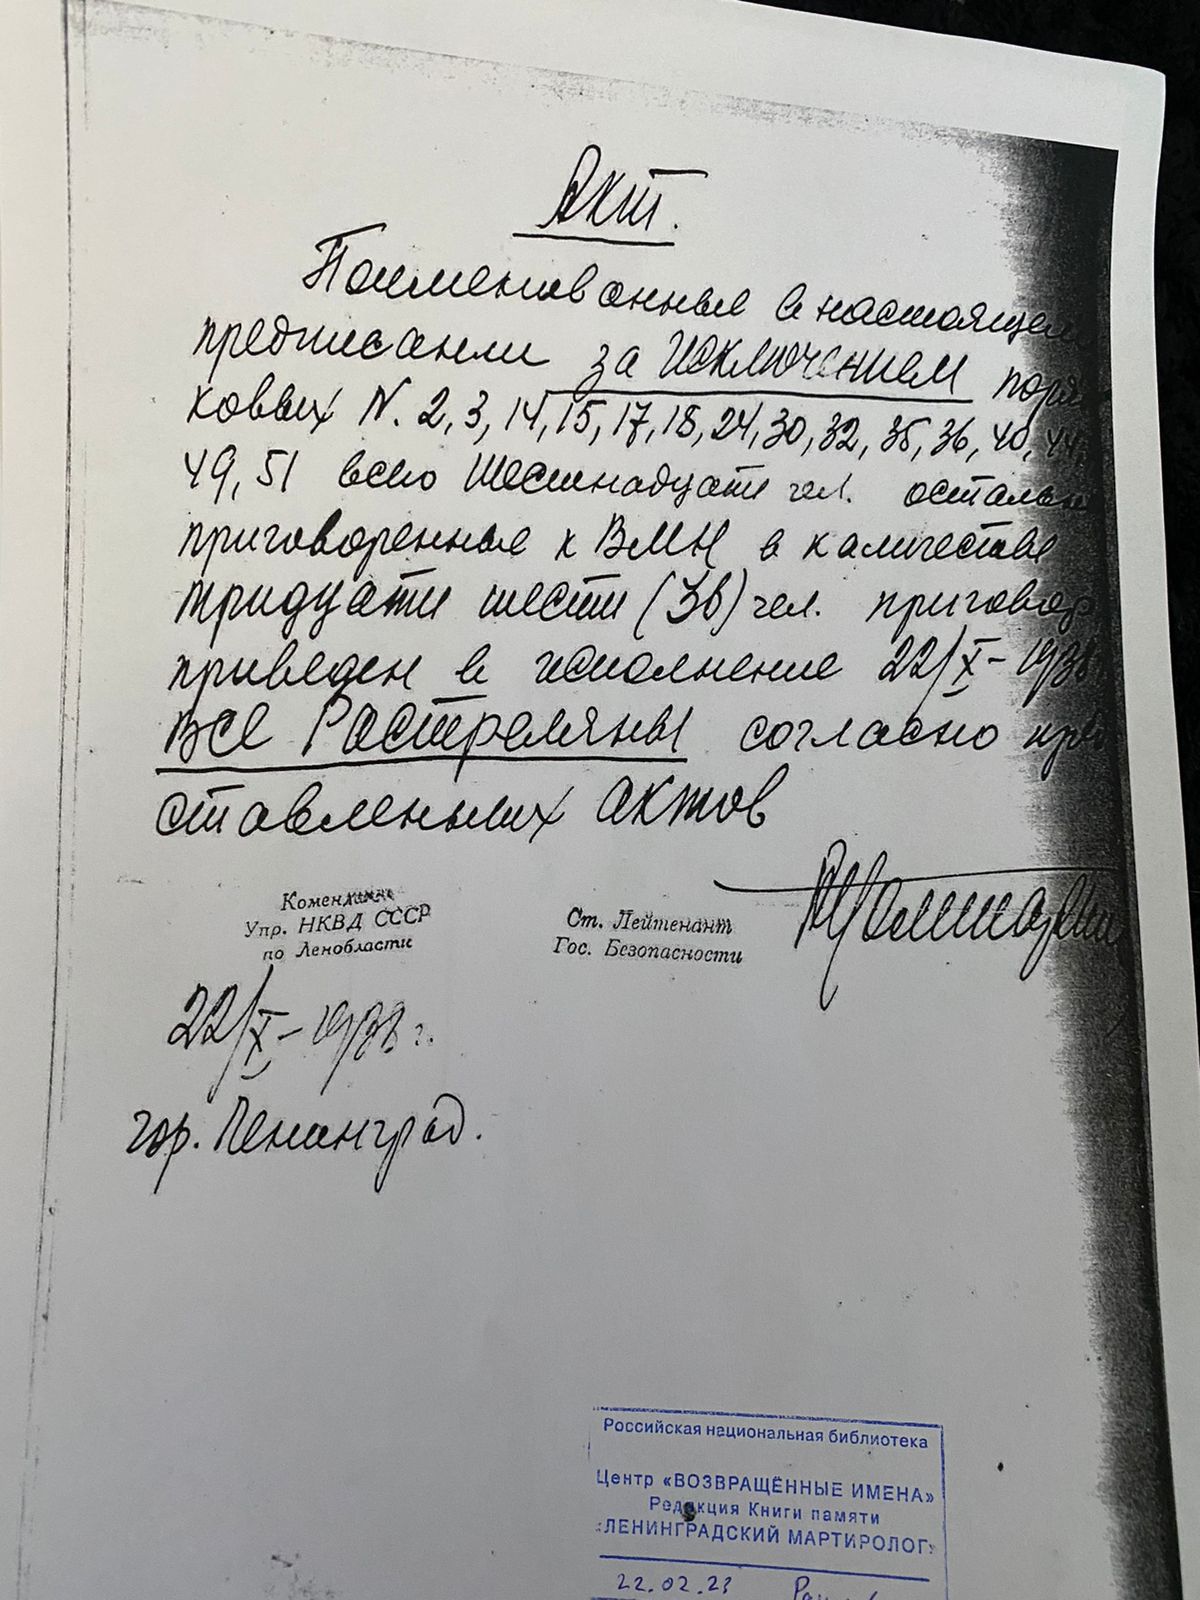 Акт.
Поименованные в настоящем
предписании за исключением поря
ковых N. 2, 3, 14, 15, 17, 18, 24, 30, 32, 35, 36, 40, 44,
49, 51 всего шестнадцати чел. осталь
приговоренные к ВМН в количестве
тридцати шести (36) чел. приговор
приведен в исполнение 22/X-1938
все Расстреляны согласно пред
ставленных актов
Комендант
Упр. НКВД СССР
по Ленобласти
Ст. Лейтенант
Гос. Безопасности
22/X-1938 г.
гор. Ленинград.
Российская национальная библиотека
Центр «ВОЗВРАЩЁННЫЕ ИМЕНА»
Редакция Книги памяти
«ЛЕНИНГРАДСКИЙ МАРТИРОЛОГ»
22.02.23